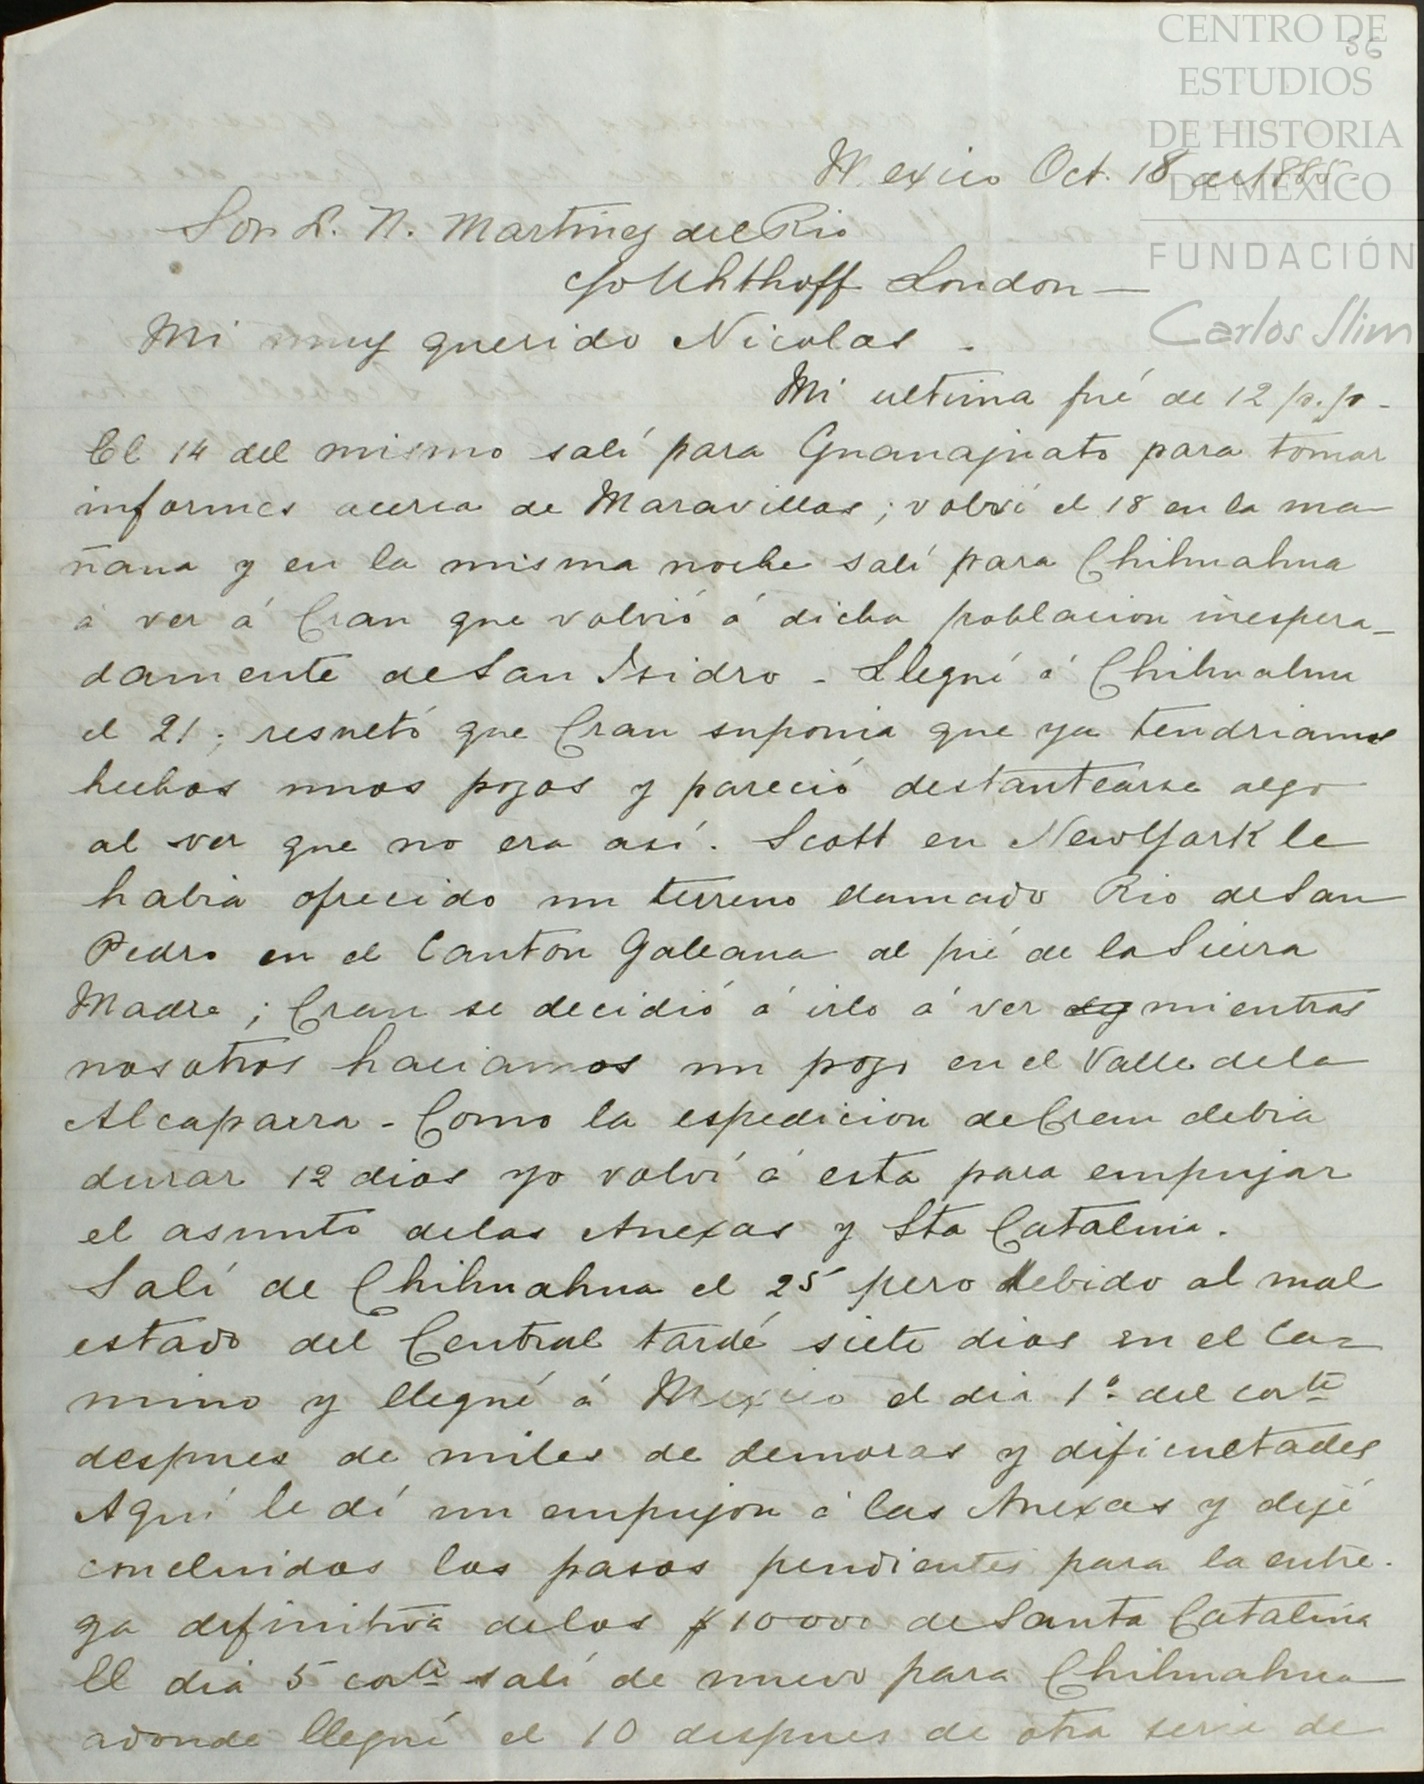 CENTRO DE
ESTUDIOS
DE HISTORIA
DE MÉXICO
FUNDACIÓN
Carlos Slim
36
Mexico Oct. 18 de
Sor. D. N. Martinez del Rio
c/o Uhthoff London —
Mi muy querido Nicolas -
Mi ultima fué de 12 p.p.-
El 14 del mismo salí para Guanajuato para tomar
informes acerca de Maravillas; volví el 18 en la ma-
ñana y en la misma noche salí para Chihuahua
á ver á Cran que volvió á dicha poblacion inespera-
damente de San Isidro - Llegué á Chihuahua
el 21; resultó que Cran suponia que ya tendriamos
hechos unos pozos y pareció destantearse algo
al ver que no era así. Scott en New York le
habia ofrecido un terreno llamado Rio de San
Pedro en el Canton Galeana al pié de la Sierra
Madre; Cran se decidió á irlo á ver mientras
nosotros haciamos un pozo en el Valle de la
Alcaparra - Como la espedicion de Cran debia
durar 12 dias yo volví á esta para empujar
el asunto de las Anexas y Sta Catalina.
Salí de Chihuahua el 25 pero debido al mal
estado del Central tardé siete dias en el ca-
mino y llegué á Mexico el dia 1º del corte
despues de miles de demoras y dificultades
Aquí le dí un empujon á las Anexas y dejé
concluidos los pasos pendientes para la entre-
ga definitiva de los $10000 de Santa Catalina
El dia 5 corte salí de nuevo para Chihuahua
adonde llegué el 10 despues de otra serie de